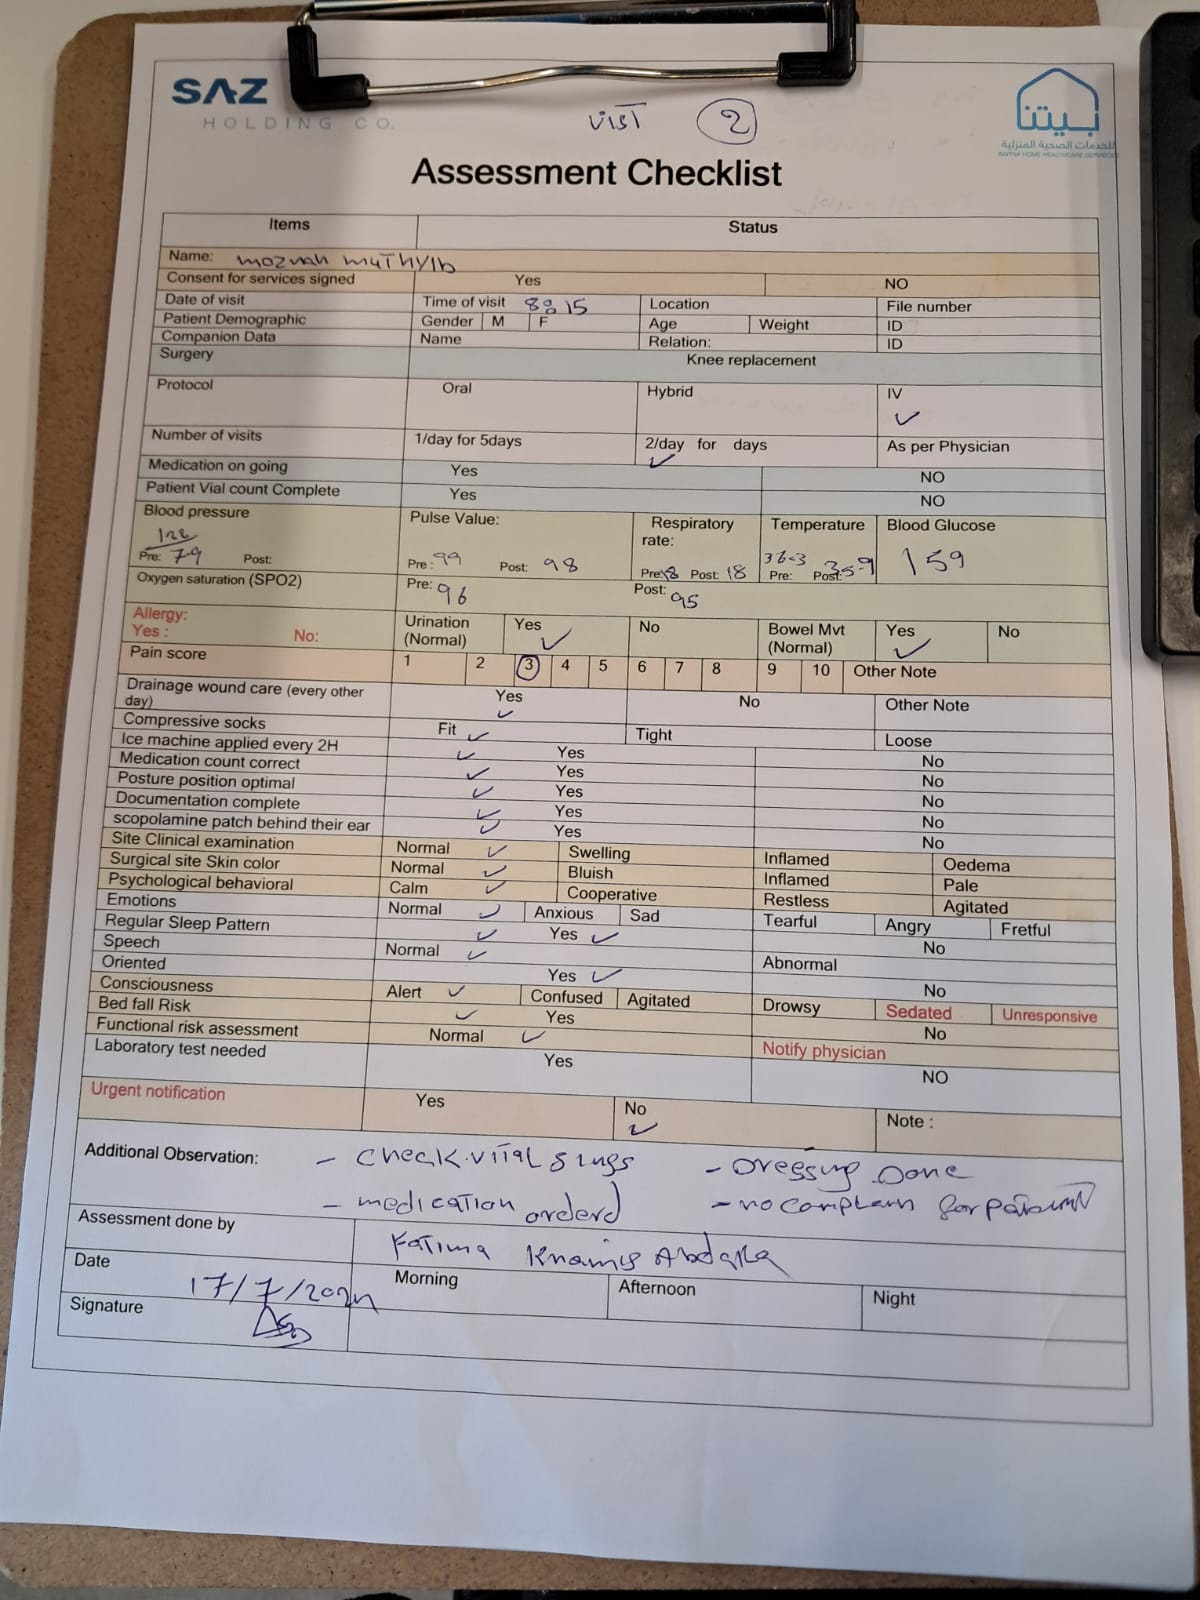 SAZ
HOLDING CO.
VisT 2
بيتنا
للخدمات الصحية المنزلية
BAITNA HOME HEALTHCARE SERVICES
Assessment Checklist
Items Status
Name: moznah muthylb
Consent for services signed Yes NO
Date of visit Time of visit 8:15 Location File number
Patient Demographic Gender M F Age Weight ID
Companion Data Name Relation: ID
Surgery Knee replacement
Protocol Oral Hybrid IV ✓
Number of visits 1/day for 5days 2/day for days ✓ As per Physician
Medication on going Yes NO
Patient Vial count Complete Yes NO
Blood pressure Pulse Value: Respiratory rate: Temperature Blood Glucose
Pre: 122/79 Post: Pre: 99 Post: 98 Pre: 18 Post: 18 Pre: 36.3 Post: 35.9 159
Oxygen saturation (SPO2) Pre: 96 Post: 95
Allergy: Yes : No: Urination (Normal) Yes ✓ No Bowel Mvt (Normal) Yes ✓ No
Pain score 1 2 3 4 5 6 7 8 9 10 Other Note
Drainage wound care (every other day) Yes ✓ No Other Note
Compressive socks Fit ✓ Tight Loose
Ice machine applied every 2H ✓ Yes No
Medication count correct ✓ Yes No
Posture position optimal ✓ Yes No
Documentation complete ✓ Yes No
scopolamine patch behind their ear ✓ Yes No
Site Clinical examination Normal ✓ Swelling Inflamed Oedema
Surgical site Skin color Normal ✓ Bluish Inflamed Pale
Psychological behavioral Calm ✓ Cooperative Restless Agitated
Emotions Normal ✓ Anxious Sad Tearful Angry Fretful
Regular Sleep Pattern ✓ Yes ✓ No
Speech Normal ✓ Abnormal
Oriented Yes ✓ No
Consciousness Alert ✓ Confused Agitated Drowsy Sedated Unresponsive
Bed fall Risk ✓ Yes No
Functional risk assessment Normal ✓ Notify physician
Laboratory test needed Yes NO
Urgent notification Yes No ✓ Note :
Additional Observation: - check vital sings - Dressing Done
- medication orderd - no complem for patient
Assessment done by Fatima Khamis Abdalla
Date 17/7/2024 Morning Afternoon Night
Signature